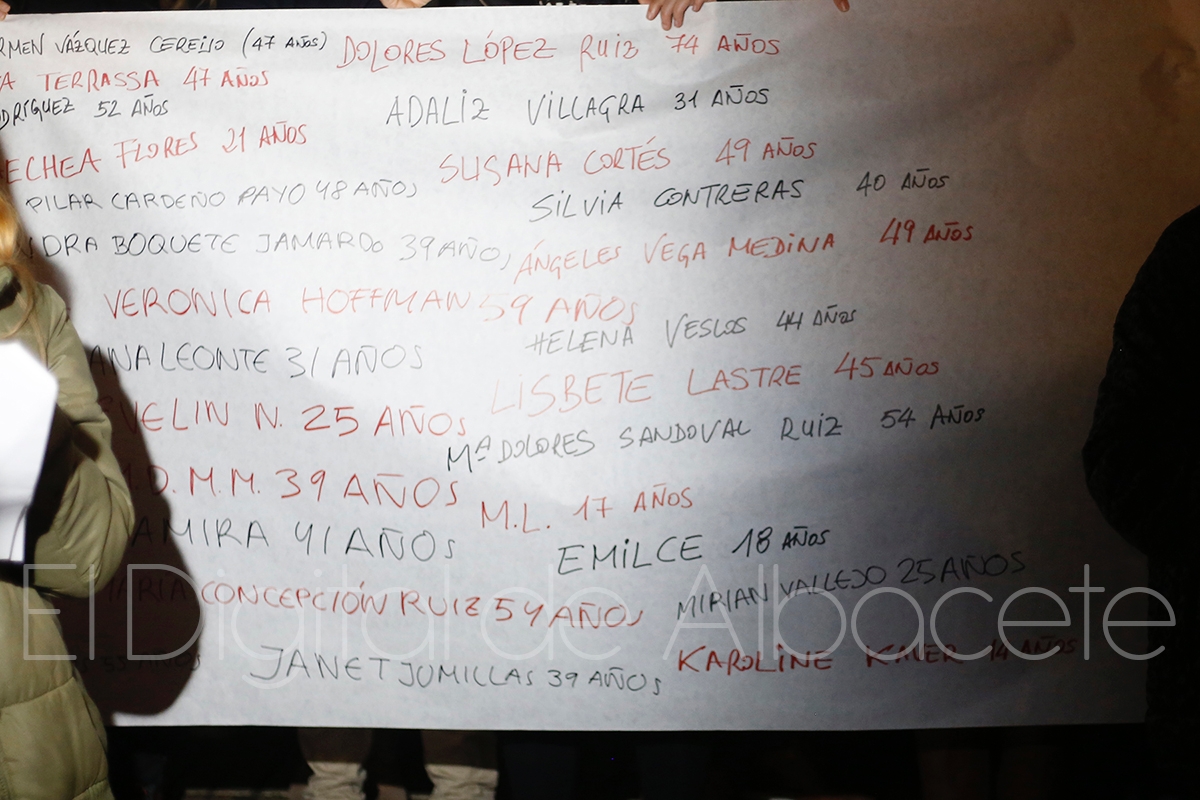 RMEN VÁZQUEZ CEREIJO (47 AÑOS)
A TERRASSA 47 AÑOS
DRÍGUEZ 52 AÑOS
ECHEA FLORES 21 AÑOS
PILAR CARDEÑO PAYO 48 AÑOS
NDRA BOQUETE JAMARDO 39 AÑOS
VERONICA HOFFMAN 59 AÑOS
ANA LEONTE 31 AÑOS
EVELIN N. 25 AÑOS
.D. M. M. 39 AÑOS
AMIRA 41 AÑOS
MARIA CONCEPCIÓN RUIZ 54 AÑOS
AÑOS
JANET JUMILLAS 39 AÑOS
DOLORES LÓPEZ RUIZ 74 AÑOS
ADALIZ VILLAGRA 31 AÑOS
SUSANA CORTÉS 49 AÑOS
SILVIA CONTRERAS 40 AÑOS
ÁNGELES VEGA MEDINA 49 AÑOS
HELENA VESLOS 44 AÑOS
LISBETE LASTRE 45 AÑOS
Mª DOLORES SANDOVAL RUIZ 54 AÑOS
M.L. 17 AÑOS
EMILCE 18 AÑOS
MIRIAN VALLEJO 25 AÑOS
KAROLINE 14 AÑOS
El Digital de Albacete